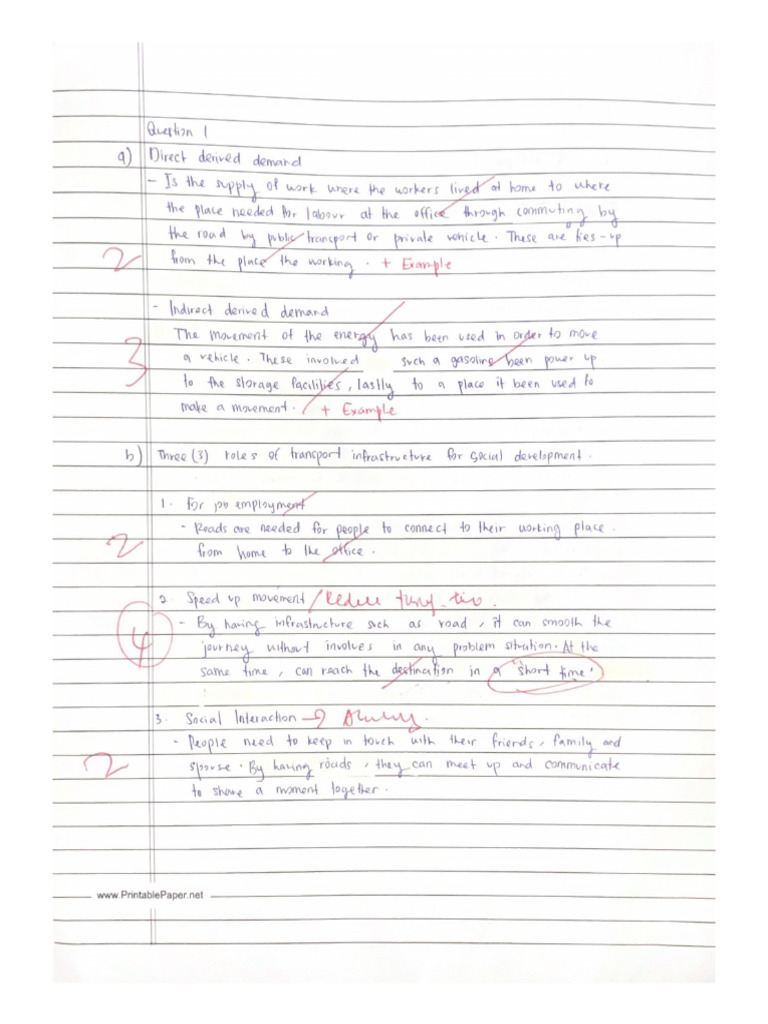 Question 1
a) Direct derived demand
- Is the supply of work where the workers lived at home to where
the place needed for labour at the office through commuting by
the road by public transport or private vehicle. These are ties-up
2 from the place the working. + Example
- Indirect derived demand
The movement of the energy has been used in order to move
3 a vehicle. These involved such a gasoline been power up
to the storage facilities, lastly to a place it been used to
make a movement. + Example
b) Three (3) roles of transport infrastructure for social development.
1. For job employment
- Roads are needed for people to connect to their working place
2 from home to the office.
2. Speed up movement / Reduce
- By having infrastructure such as road, it can smooth the
4 journey without involves in any problem situation. At the
same time, can reach the destination in a "short time"
3. Social Interaction →
- People need to keep in touch with their friends, family and
2 spouse. By having roads, they can meet up and communicate
to share a moment together.
www.PrintablePaper.net